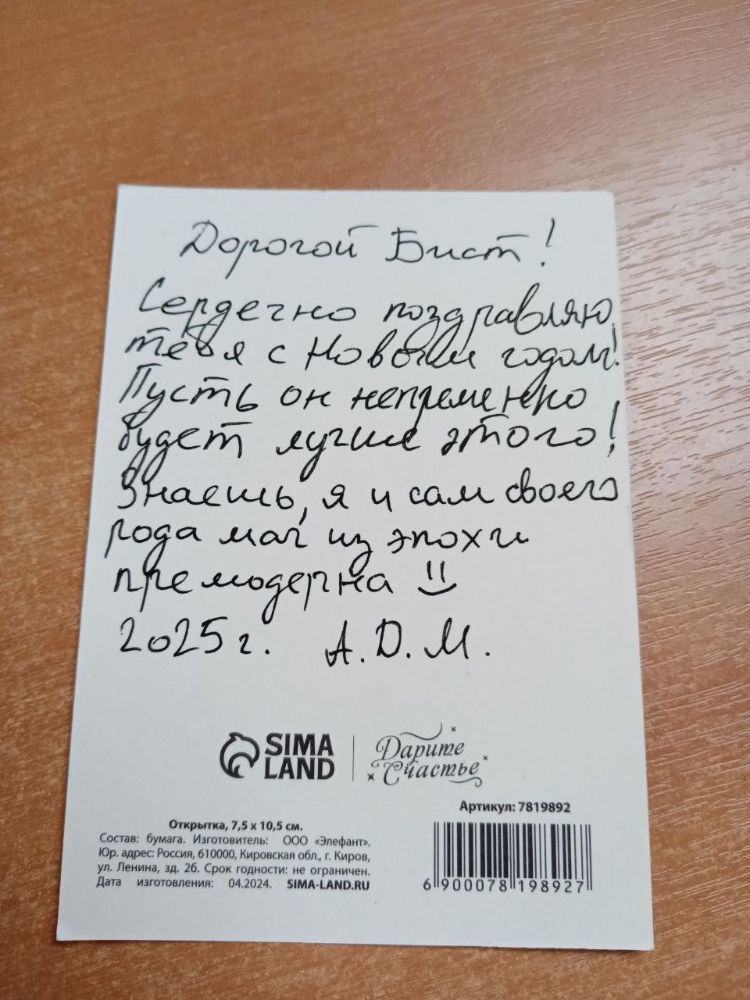 Дорогой Бист!
Сердечно поздравляю
тебя с Новым годом!
Пусть он непременно
будет лучше этого!
Знаешь, я и сам своего
рода маг из эпохи
премодерна :)
2025 г. А. D. М.
SIMA LAND
Дарите Счастье
Артикул: 7819892
Открытка, 7,5 х 10,5 см.
Состав: бумага. Изготовитель: ООО «Элефант».
Юр. адрес: Россия, 610000, Кировская обл., г. Киров,
ул. Ленина, зд. 2б. Срок годности: не ограничен.
Дата изготовления: 04.2024. SIMA-LAND.RU
6 900078 198927